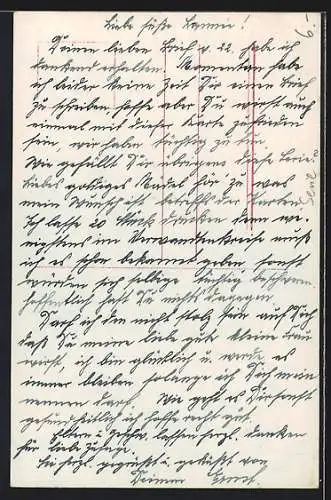 Liebe süße Lannie!
Deinen lieben Brief v. 22. habe ich
dankend erhalten. Momentan habe
ich leider keine Zeit Dir einen Brief
zu schreiben hoffe aber Du wirst auch
einmal mit dieser Karte zufrieden
sein, wir haben tüchtig zu tun.
Wie gefällt Dir übrigens diese Serie?
Liebes goldiges Madel hör zu was
mein Wunsch ist betreffs der Karten
Ich lasse 20 Stück drucken denn we-
nigstens im Verwandtenkreise muß
ich es schon bekannt geben sonst
würden sich selbige tüchtig beschweren.
Hoffentlich hast Du nichts dagegen.
Darf ich denn nicht stolz sein auf Dich
daß Du meine liebe gute kleine Frau
wirst, ich bin glücklich u. werde es
immer bleiben solange ich Dich mein
nennen darf. Wie geht es Dir sonst
gesundheitlich ich hoffe recht gut.
Eltern u. Geschw. lassen herzl. danken
für liebe
Sei herzl. gegrüßt u. geküßt von
Deinem Ernst.